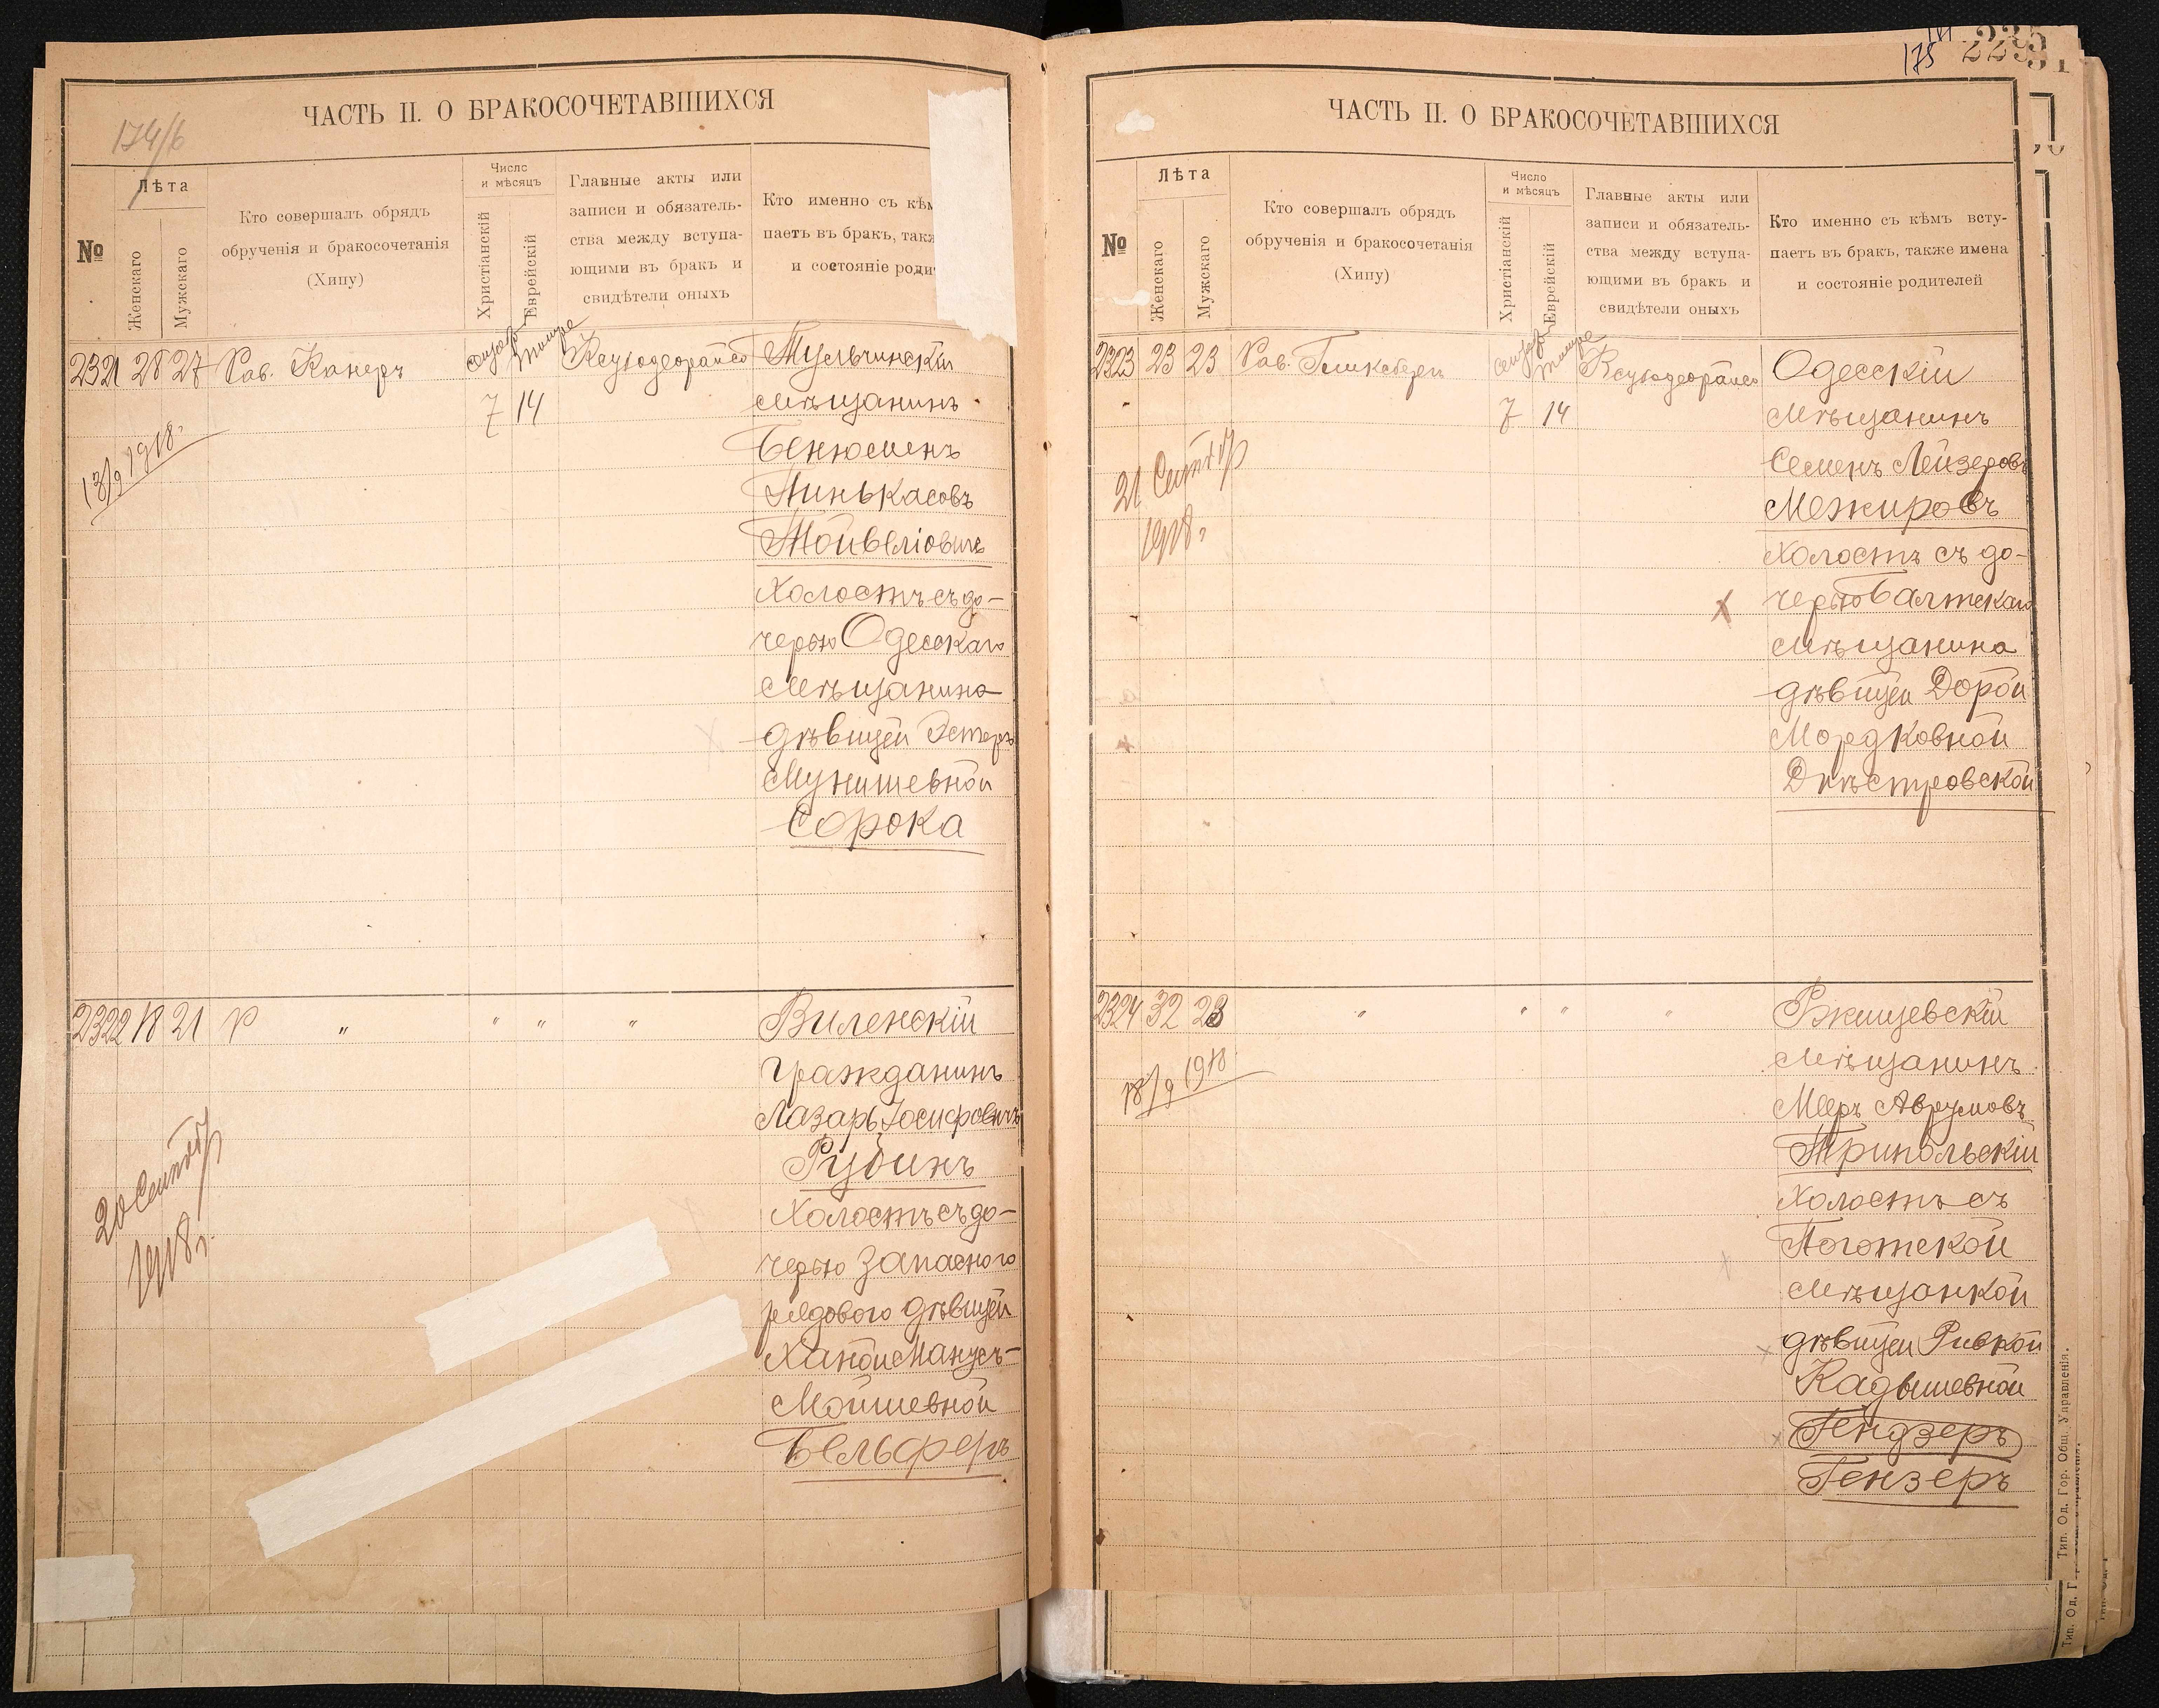 174/б
ЧАСТЬ II. О БРАКОСОЧЕТАВШИХСЯ
№
Лѣта
Женскаго
Мужскаго
Кто совершалъ обрядъ
обрученія и бракосочетанія
(Хипу)
Число
и мѣсяцъ
Христіанскій
Еврейскій
Главные акты или
записи и обязатель-
ства между вступа-
ющими въ бракъ и
свидѣтели оныхъ
Кто именно съ кѣм
паетъ въ бракъ, такж
и состояніе роди
2321 28 27 Рав. Канеръ
7 14
13/9 1918.
Тульчинскій
мѣщанинъ
Бенюменъ
Пинькасовъ
Тойвеліовичъ
холостъ съ до-
черью Одесскаго
мѣщанина
дѣвицей Эстеръ
Мунишевной
Сорока
2322 18 21 Р " " " "
20 Сентяб
1918 г.
Виленскій
гражданинъ
Лазарь Іосифовичъ
Рубинъ
холостъ съ до-
черью запасного
рядового дѣвицей
Ханой Манусъ-
Мойшевной
Бельферъ
175
ЧАСТЬ II. О БРАКОСОЧЕТАВШИХСЯ
№
Лѣта
Женскаго
Мужскаго
Кто совершалъ обрядъ
обрученія и бракосочетанія
(Хипу)
Число
и мѣсяцъ
Христіанскій
Еврейскій
Главные акты или
записи и обязатель-
ства между вступа-
ющими въ бракъ и
свидѣтели оныхъ
Кто именно съ кѣмъ всту-
паетъ въ бракъ, также имена
и состояніе родителей
2323 23 23 Рав. Гликсбергъ
7 14
21 Сентяб
1918.
Одесскій
мѣщанинъ
Семенъ Лейзеровъ
Межировъ
холостъ съ до-
черью Балтскаго
мѣщанина
дѣвицей Дорой
Мордковной
Днѣстровской
2324 32 28 " " " "
18/9 1918
Ржищевскій
мѣщанинъ
Мееръ Аврумовъ
Трипольскій
холостъ съ
мѣщанкой
дѣвицей Ривкой
Кадышевной
Гендзеръ
Гензеръ
Тип. Од. Гор. Общ. Управленія.